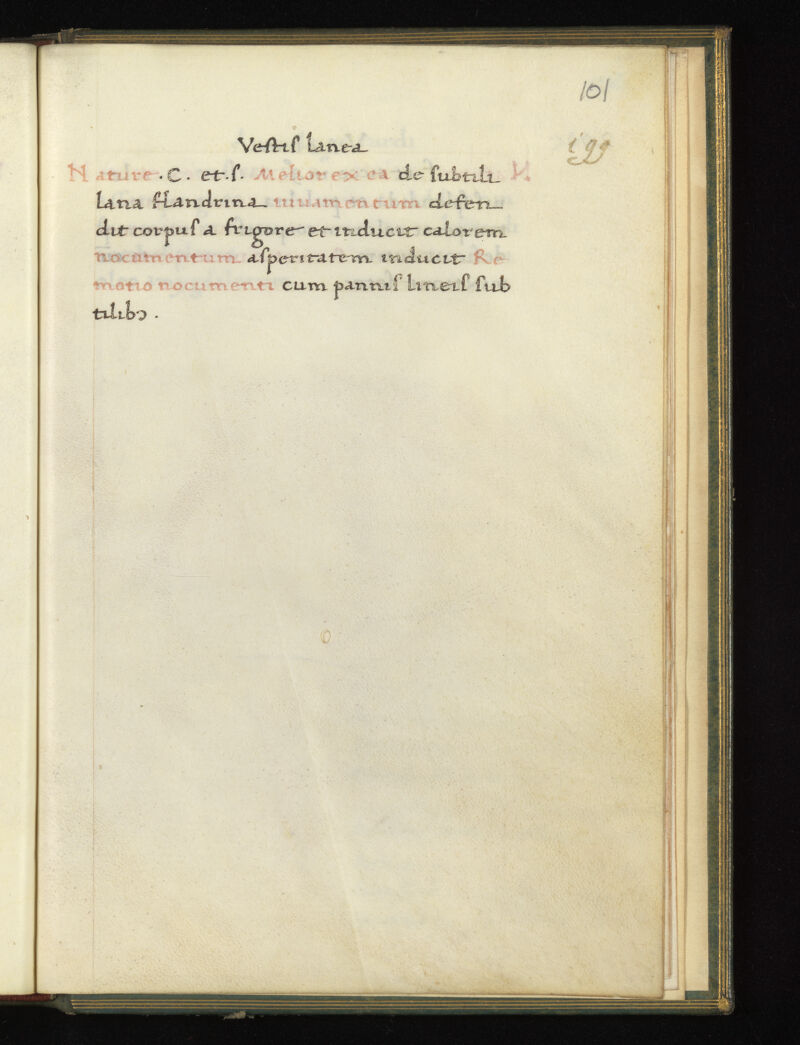 101
Vestis lanea
Nature .C. et .s. Melior ex ea de subtili
lana flandrina iuuamentum defen
dit corpus a frigore et inducit calorem
nocumentum asperitatem inducit Re
motio nocumenti cum pannis lineis sub
tilibꝰ .